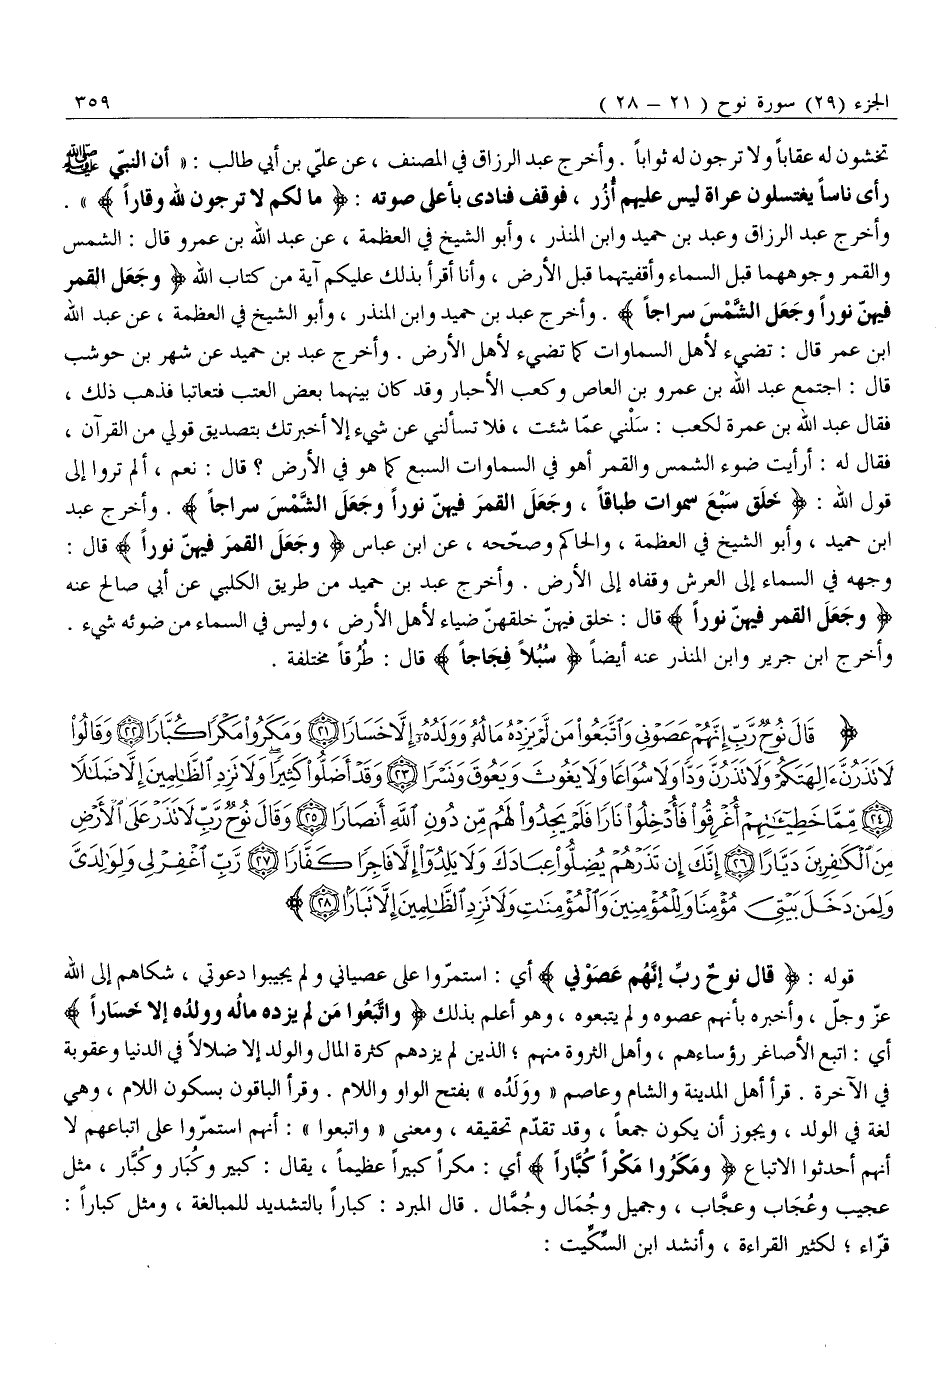 الجزء (٢٩) سورة نوح ( ٢١ – ٢٨ )
٣٥٩
تخشون له عقاباً ولا ترجون له ثواباً . وأخرج عبد الرزاق في المصنف ، عن عليّ بن أبي طالب : « أن النبيّ ﷺ
رأى ناساً يغتسلون عراة ليس عليهم أُزُر ، فوقف فنادى بأعلى صوته : ﴿ ما لكم لا ترجون لله وقاراً ﴾ » .
وأخرج عبد الرزاق وعبد بن حميد وابن المنذر ، وأبو الشيخ في العظمة ، عن عبد الله بن عمرو قال : الشمس
والقمر وجوههما قبل السماء وأقفيتهما قبل الأرض ، وأنا أقرأ بذلك عليكم آية من كتاب الله ﴿ وجَعل القمر
فيهنّ نوراً وجَعل الشَّمْسَ سراجاً ﴾ . وأخرج عبد بن حميد وابن المنذر ، وأبو الشيخ في العظمة ، عن عبد الله
ابن عمر قال : تضيء لأهل السماوات كما تضيء لأهل الأرض . وأخرج عبد بن حميد عن شهر بن حوشب
قال : اجتمع عبد الله بن عمرو بن العاص وكعب الأحبار وقد كان بينهما بعض العتب فتعاتبا فذهب ذلك ،
فقال عبد الله بن عمرة لكعب : سَلْني عمّا شئت ، فلا تسألني عن شيء إلا أخبرتك بتصديق قولي من القرآن ،
فقال له : أرأيت ضوء الشمس والقمر أهو في السماوات السبع كما هو في الأرض ؟ قال : نعم ، ألم تروا إلى
قول الله : ﴿ خَلَق سَبْعَ سموات طباقاً ، وجَعَل القمرَ فيهنّ نوراً وجَعَلَ الشَّمْسَ سراجاً ﴾ . وأخرج عبد
ابن حميد ، وأبو الشيخ في العظمة ، والحاكم وصحّحه ، عن ابن عباس ﴿ وجَعَل القمرَ فيهنّ نوراً ﴾ قال :
وجهه في السماء إلى العرش وقفاه إلى الأرض . وأخرج عبد بن حميد من طريق الكلبي عن أبي صالح عنه
﴿ وجَعَلَ القمر فيهنّ نوراً ﴾ قال : خلق فيهنّ خلقهنّ ضياء لأهل الأرض ، وليس في السماء من ضوئه شيء .
وأخرج ابن جرير وابن المنذر عنه أيضاً ﴿ سُبُلاً فِجَاجاً ﴾ قال : طُرُقاً مختلفة .
﴿ قَالَ نُوحٌ رَّبِّ إِنَّهُمْ عَصَوْنِي وَاتَّبَعُوا۟ مَن لَّمْ يَزِدْهُ مَالُهُۥ وَوَلَدُهُۥٓ إِلَّا خَسَارًا ﴿٢١﴾ وَمَكَرُوا۟ مَكْرًا كُبَّارًا ﴿٢٢﴾ وَقَالُوا۟
لَا تَذَرُنَّ ءَالِهَتَكُمْ وَلَا تَذَرُنَّ وَدًّا وَلَا سُوَاعًا وَلَا يَغُوثَ وَيَعُوقَ وَنَسْرًا ﴿٢٣﴾ وَقَدْ أَضَلُّوا۟ كَثِيرًا ۖ وَلَا تَزِدِ ٱلظَّٰلِمِينَ إِلَّا ضَلَٰلًا
﴿٢٤﴾ مِّمَّا خَطِيٓـَٰٔتِهِمْ أُغْرِقُوا۟ فَأُدْخِلُوا۟ نَارًا فَلَمْ يَجِدُوا۟ لَهُم مِّن دُونِ ٱللَّهِ أَنصَارًا ﴿٢٥﴾ وَقَالَ نُوحٌ رَّبِّ لَا تَذَرْ عَلَى ٱلْأَرْضِ
مِنَ ٱلْكَٰفِرِينَ دَيَّارًا ﴿٢٦﴾ إِنَّكَ إِن تَذَرْهُمْ يُضِلُّوا۟ عِبَادَكَ وَلَا يَلِدُوٓا۟ إِلَّا فَاجِرًا كَفَّارًا ﴿٢٧﴾ رَّبِّ ٱغْفِرْ لِي وَلِوَٰلِدَيَّ
وَلِمَن دَخَلَ بَيْتِيَ مُؤْمِنًا وَلِلْمُؤْمِنِينَ وَٱلْمُؤْمِنَٰتِ وَلَا تَزِدِ ٱلظَّٰلِمِينَ إِلَّا تَبَارًا ﴿٢٨﴾ ﴾
قوله : ﴿ قال نوحٌ ربِّ إنَّهُم عَصَوْني ﴾ أي : استمرّوا على عصياني ولم يجيبوا دعوتي ، شكاهم إلى الله
عزّ وجلّ ، وأخبره بأنهم عصوه ولم يتبعوه ، وهو أعلم بذلك ﴿ واتَّبَعُوا مَن لم يزده مالُه وولدُه إلا خَسَاراً ﴾
أي : اتبع الأصاغر رؤساءهم ، وأهل الثروة منهم ؛ الذين لم يزدهم كثرة المال والولد إلا ضلالاً في الدنيا وعقوبة
في الآخرة . قرأ أهل المدينة والشام وعاصم « ووَلَدُه » بفتح الواو واللام . وقرأ الباقون بسكون اللام ، وهي
لغة في الولد ، ويجوز أن يكون جمعاً ، وقد تقدّم تحقيقه ، ومعنى « واتبعوا » : أنهم استمرّوا على اتباعهم لا
أنهم أحدثوا الاتباع ﴿ ومَكَرُوا مَكْراً كُبَّاراً ﴾ أي : مكراً كبيراً عظيماً ، يقال : كبير وكُبَار وكُبَّار ، مثل
عجيب وعُجَاب وعجَّاب ، وجميل وجُمَال وجُمَّال . قال المبرد : كباراً بالتشديد للمبالغة ، ومثل كباراً :
قرّاء ؛ لكثير القراءة ، وأنشد ابن السِّكِّيت :